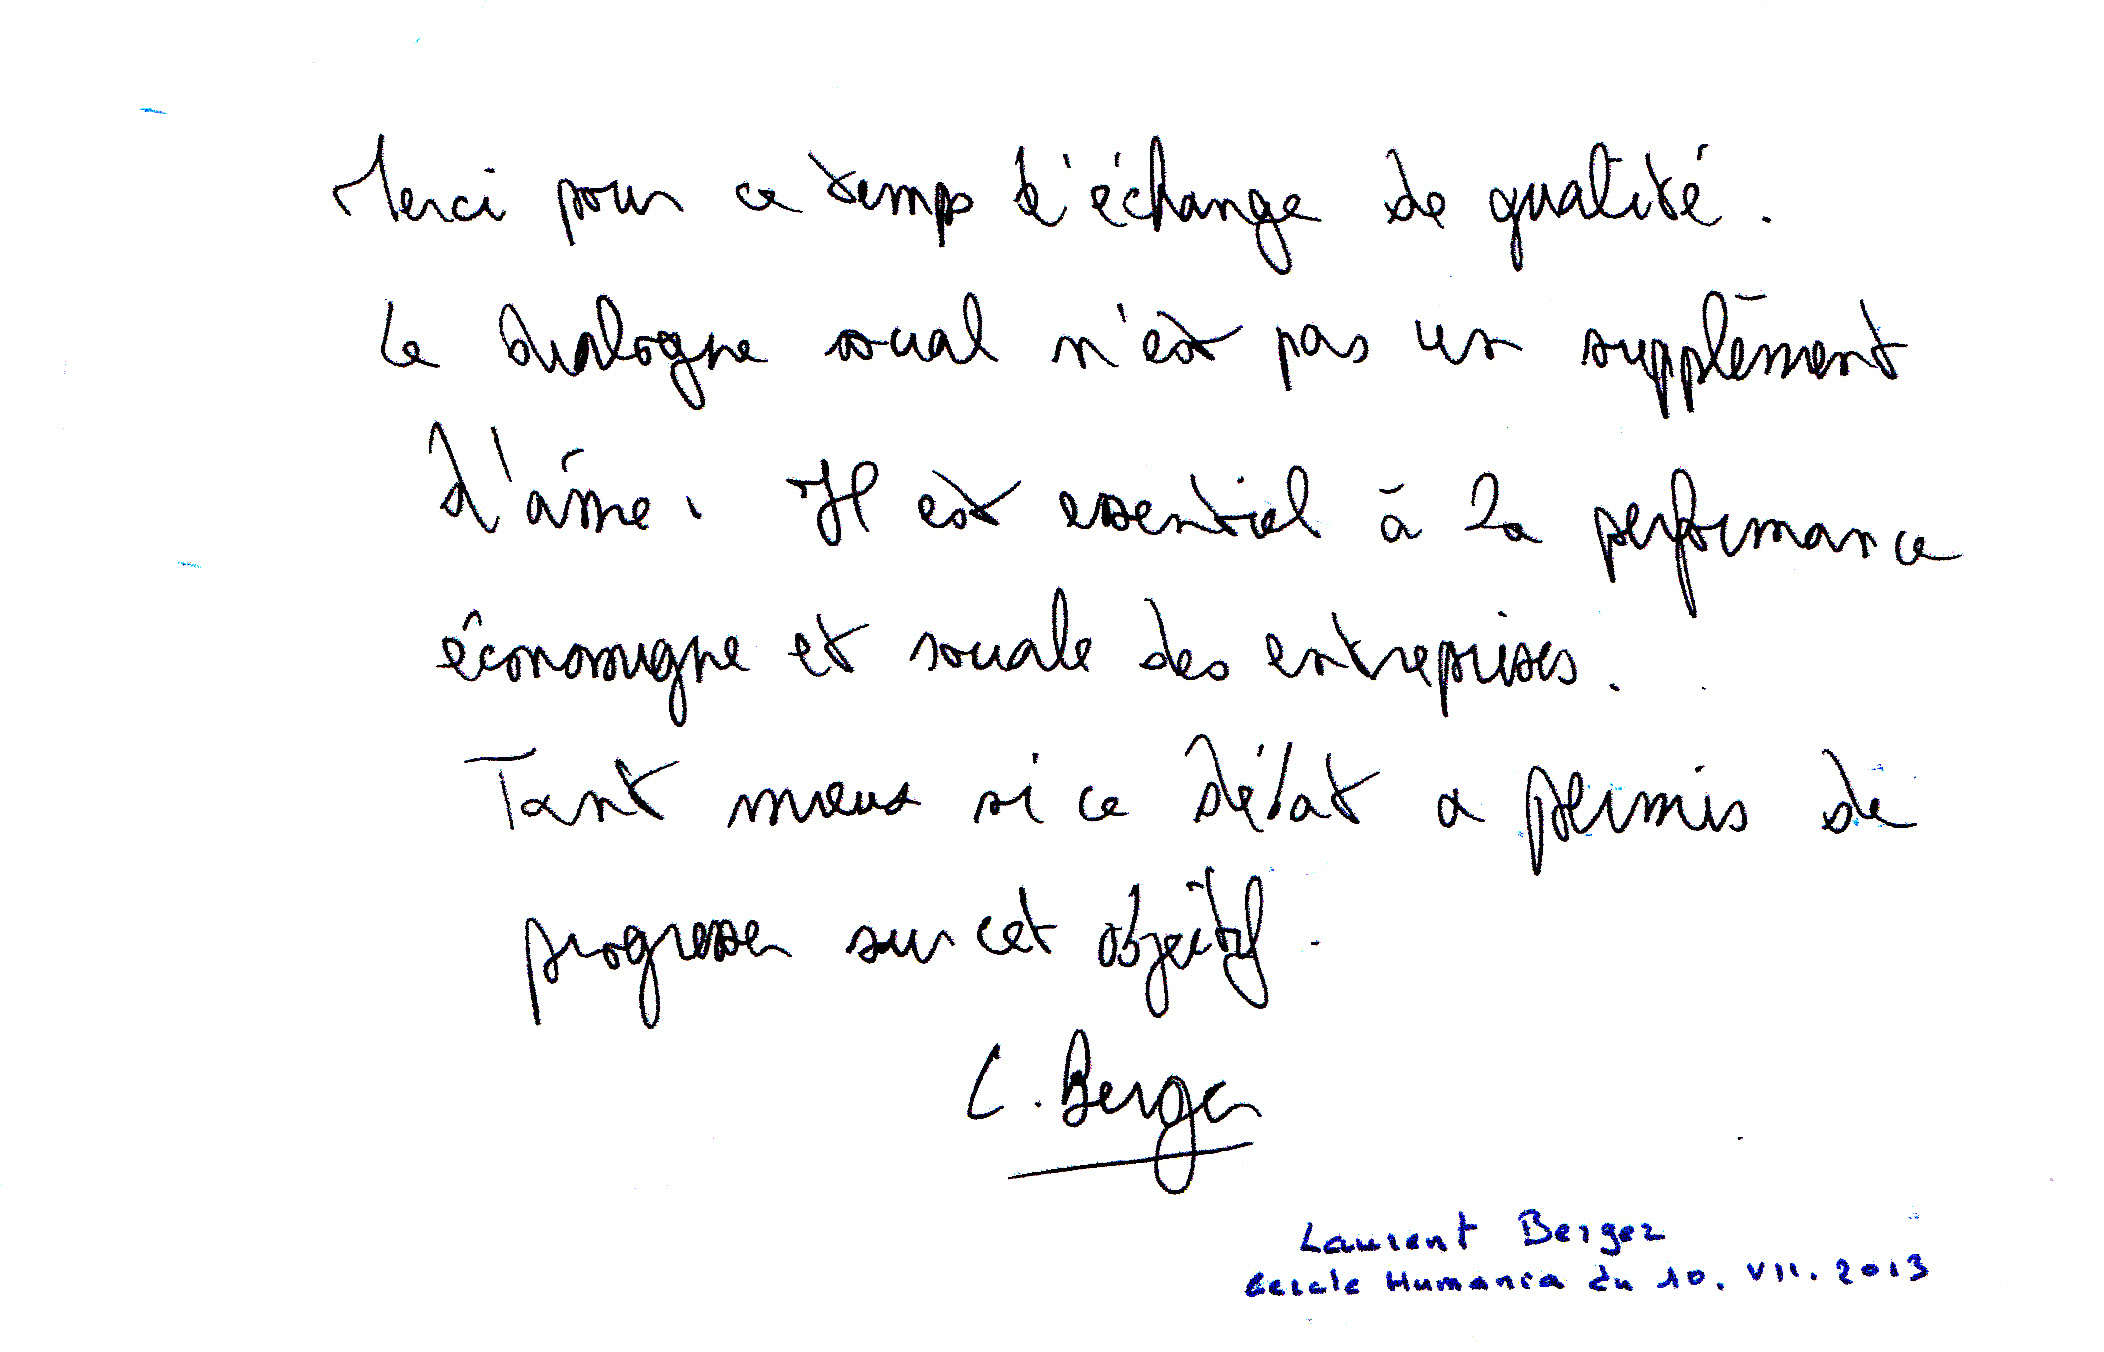 Merci pour ce temps d'échange de qualité.
Le dialogue social n'est pas un supplément
d'âme. Il est essentiel à la performance
économique et sociale des entreprises.
Tant mieux si ce débat a permis de
progresser sur cet objectif.
L. Berger
Laurent Berger
Cercle Humania du 10. VII. 2013